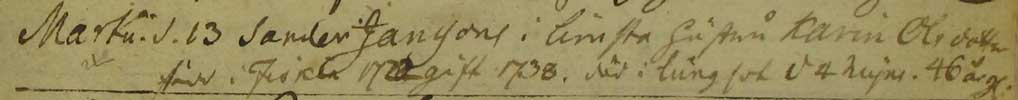 Martii. d. 13 Sander Jansons i Limsta hustru Karin Olsdotter
född i Fiskla 1722 gift 1738. död i lungsot d 4 hujus. 46 år gl.